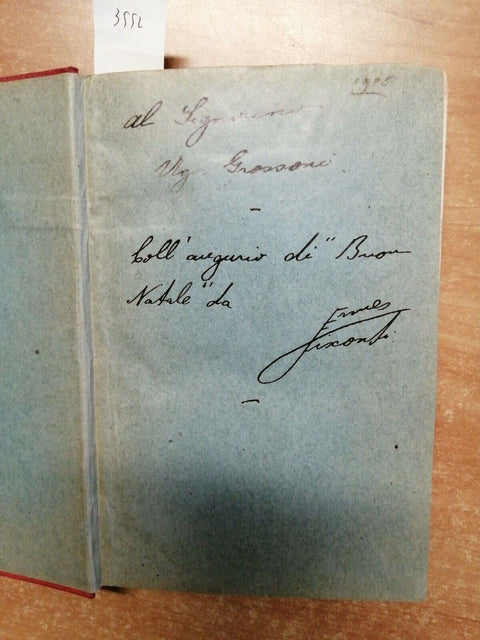 3552
1905
al Signorino
Ugo Grossoni
–
Coll'augurio di "Buon
Natale" da
Ermes
Visconti
–